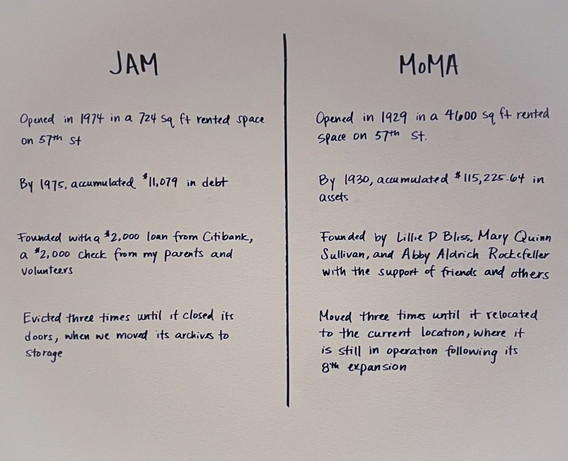 JAM
Opened in 1974 in a 724 sq ft rented space
on 57th St
By 1975, accumulated $11,079 in debt
Founded with a $2,000 loan from Citibank,
a $2,000 check from my parents and
volunteers
Evicted three times until it closed its
doors, when we moved its archives to
storage
MoMA
Opened in 1929 in a 4600 sq ft rented
space on 57th St.
By 1930, accumulated $115,225.64 in
assets
Founded by Lillie P Bliss, Mary Quinn
Sullivan, and Abby Aldrich Rockefeller
with the support of friends and others
Moved three times until it relocated
to the current location, where it
is still in operation following its
8th expansion